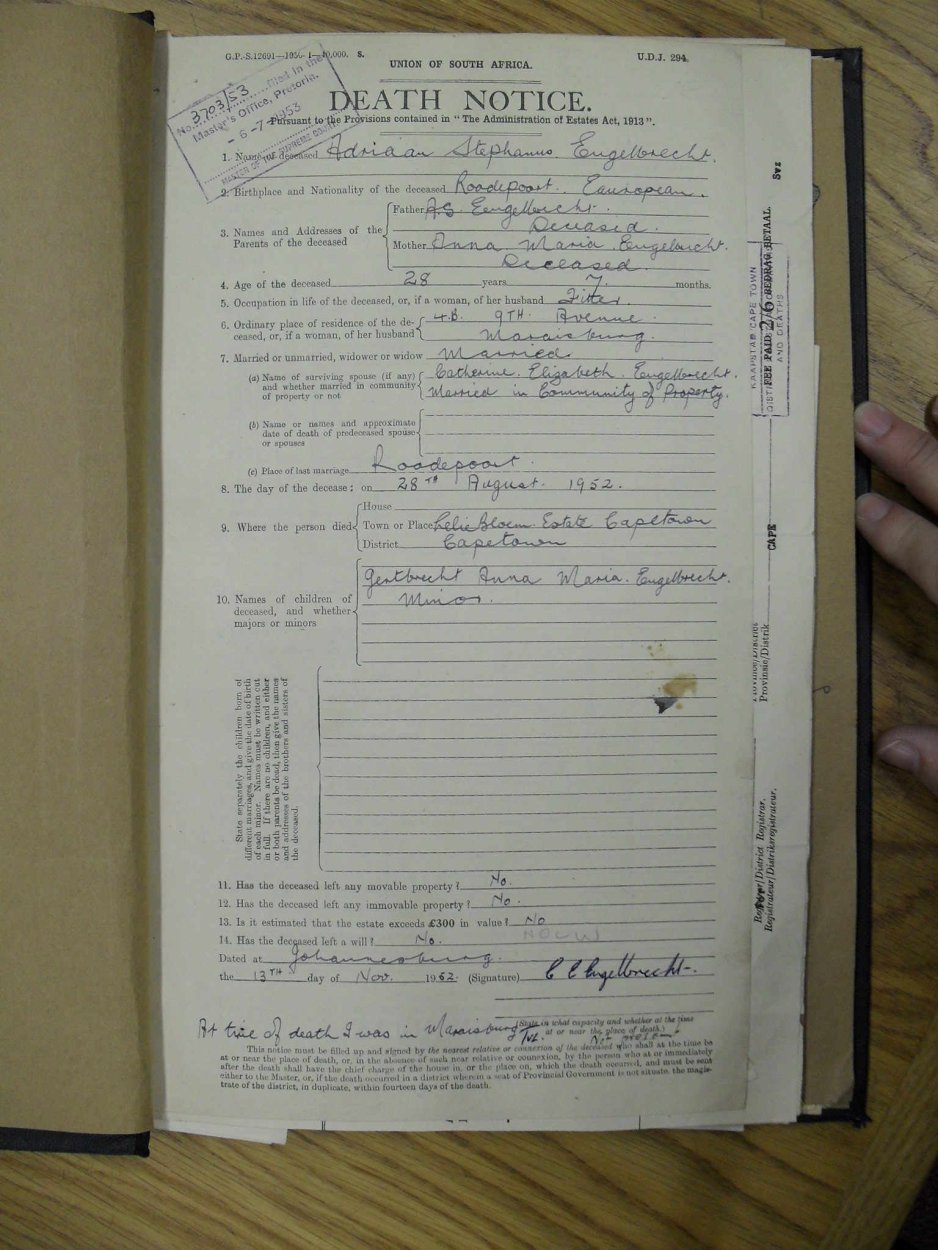 G.P.-S.12691—1950- 1—10,000. S.
U.D.J. 294.
UNION OF SOUTH AFRICA.
No. 3703/53 filed in the
Master's Office, Pretoria.
- 6 -7- 1953
MASTER OF THE SUPREME COURT
DEATH NOTICE.
Pursuant to the Provisions contained in "The Administration of Estates Act, 1913".
1. Name of deceased Adriaan Stephanus Engelbrecht.
2. Birthplace and Nationality of the deceased Roodepoort. Eauropean.
3. Names and Addresses of the Parents of the deceased
Father A.S. Eengelbrecht.
Deceased.
Mother Anna Maria Engelbrecht.
Deceased.
4. Age of the deceased 28 years 7 months.
5. Occupation in life of the deceased, or, if a woman, of her husband Fitter.
6. Ordinary place of residence of the deceased, or, if a woman, of her husband
4.B. 9TH. Avenue.
Maraisburg.
7. Married or unmarried, widower or widow Married
(a) Name of surviving spouse (if any) and whether married in community of property or not
Catherine Elizabeth Engelbrecht.
Married in Community of Property.
(b) Name or names and approximate date of death of predeceased spouse or spouses
(c) Place of last marriage Roodepoort.
8. The day of the decease; on 28TH August. 1952.
9. Where the person died
House
Town or Place Lelie Bloem Estate Capetown
District Capetown
10. Names of children of deceased, and whether majors or minors
Gertbrecht Anna Maria Engelbrecht.
Minor.
State separately the children born of
different marriages, and give the date of birth
of each minor. Names must be written out
in full. If there are no children, and either
or both parents be dead, then give the names
and addresses of the brothers and sisters of
the deceased.
11. Has the deceased left any movable property? No.
12. Has the deceased left any immovable property? No.
13. Is it estimated that the estate exceeds £300 in value? No
14. Has the deceased left a will? No.
Dated at Johannesburg.
the 13TH day of Nov. 1952. (Signature) C E Engelbrecht.
(State in what capacity and whether at the time
at or near the place of death.)
At time of death I was in Maraisburg Tvl. Not present
This notice must be filled up and signed by the nearest relative or connexion of the deceased who shall at the time be
at or near the place of death, or, in the absence of such near relative or connexion, by the person who at or immediately
after the death shall have the chief charge of the house in, or the place on, which the death occurred, and must be sent
either to the Master, or, if the death occurred in a district wherein a seat of Provincial Government is not situate, the magis-
trate of the district, in duplicate, within fourteen days of the death.
FEE PAID 2/6 BEDRAG BETAAL.
KAAPSTAD CAPE TOWN
AND DEATHS
CAPE
Provinsie/Distrik
/District Registrar.
Registrateur/Distriksregistrateur.